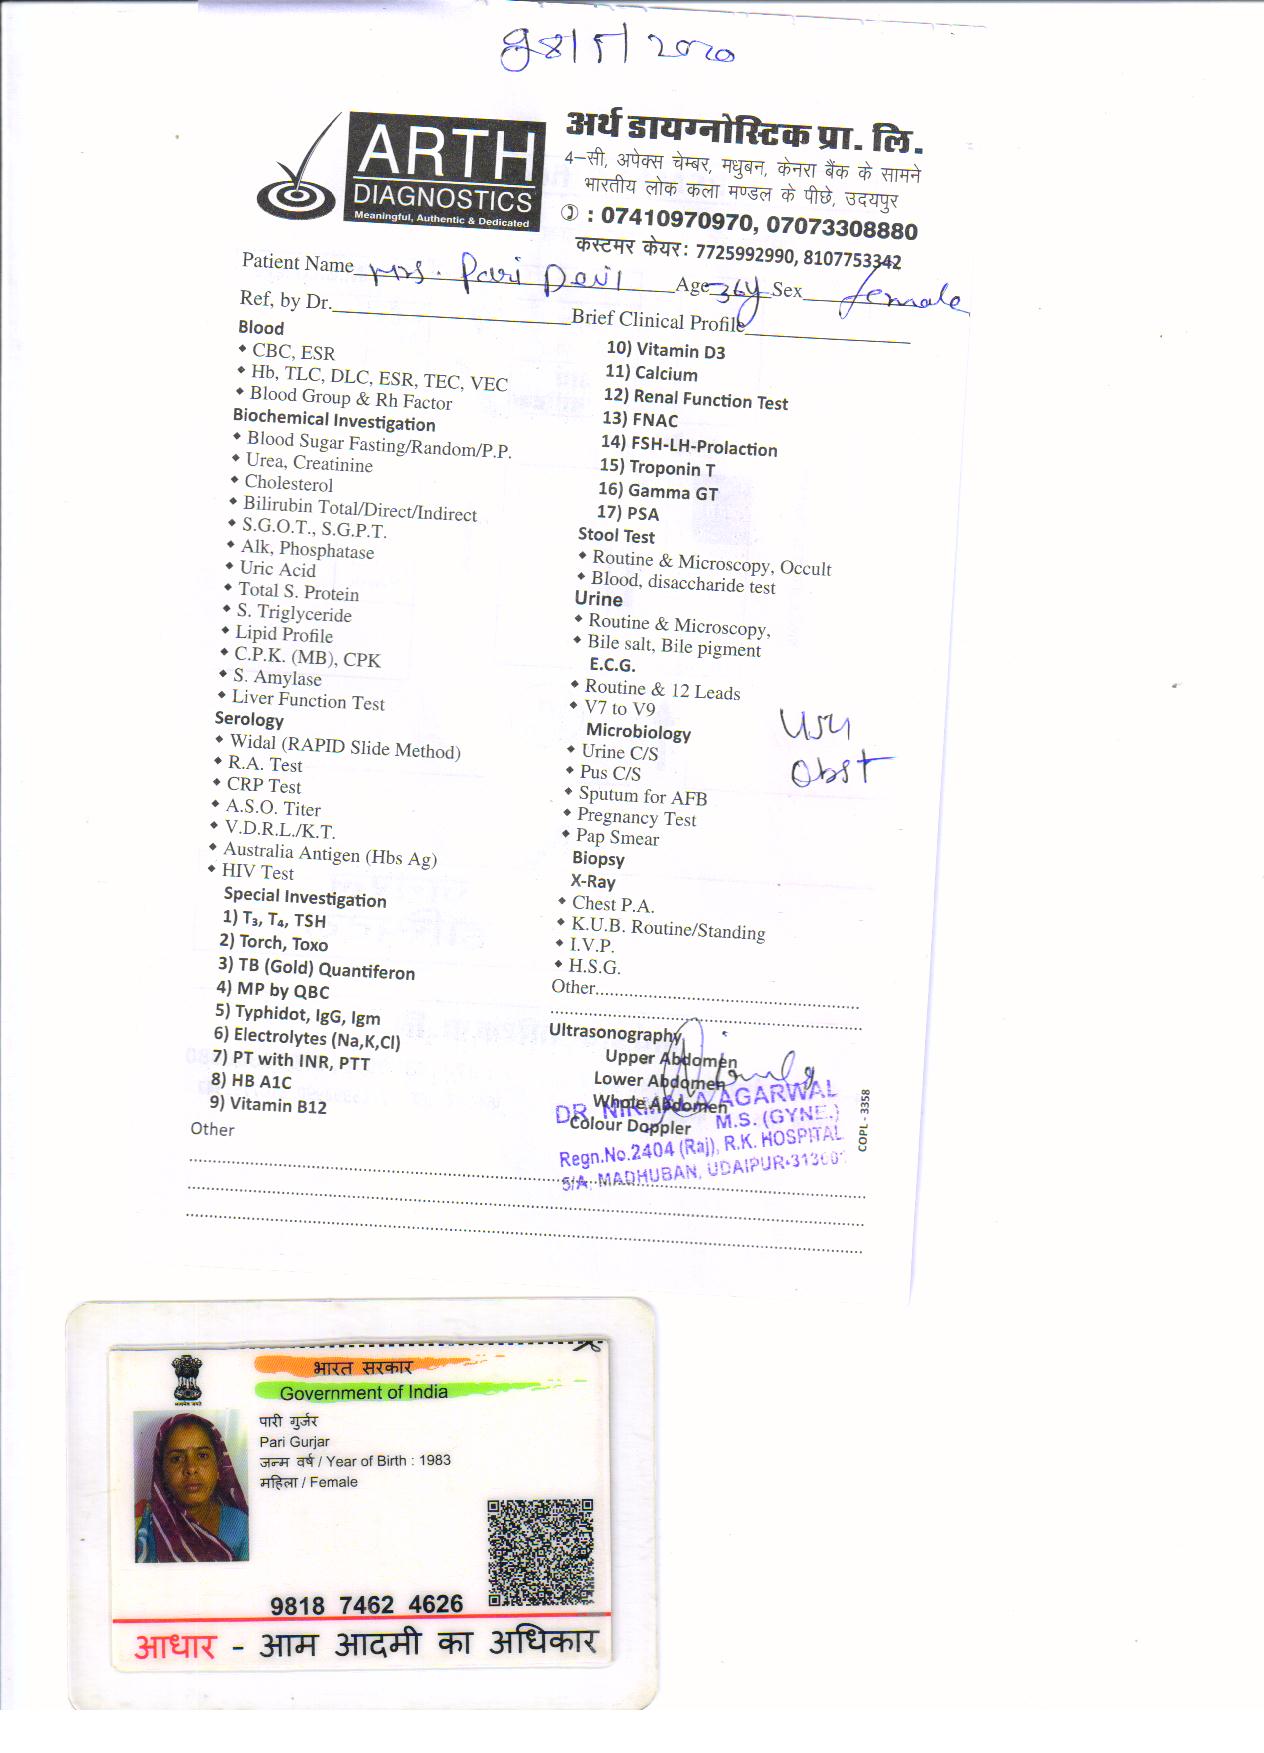 2020
ARTH
DIAGNOSTICS
Meaningful, Authentic & Dedicated
अर्थ डायग्नोस्टिक प्रा. लि.
4-सी, अपेक्स चेम्बर, मधुबन, केनरा बैंक के सामने
भारतीय लोक कला मण्डल के पीछे, उदयपुर
: 07410970970, 07073308880
कस्टमर केयर: 7725992990, 8107753342
Patient Name Mrs. Pari Devi Age 36y Sex female
Ref, by Dr. Brief Clinical Profile
Blood
CBC, ESR
Hb, TLC, DLC, ESR, TEC, VEC
Blood Group & Rh Factor
Biochemical Investigation
Blood Sugar Fasting/Random/P.P.
Urea, Creatinine
Cholesterol
Bilirubin Total/Direct/Indirect
S.G.O.T., S.G.P.T.
Alk, Phosphatase
Uric Acid
Total S. Protein
S. Triglyceride
Lipid Profile
C.P.K. (MB), CPK
S. Amylase
Liver Function Test
Serology
Widal (RAPID Slide Method)
R.A. Test
CRP Test
A.S.O. Titer
V.D.R.L./K.T.
Australia Antigen (Hbs Ag)
HIV Test
Special Investigation
1) T₃, T₄, TSH
2) Torch, Toxo
3) TB (Gold) Quantiferon
4) MP by QBC
5) Typhidot, IgG, Igm
6) Electrolytes (Na,K,Cl)
7) PT with INR, PTT
8) HB A1C
9) Vitamin B12
Other
10) Vitamin D3
11) Calcium
12) Renal Function Test
13) FNAC
14) FSH-LH-Prolaction
15) Troponin T
16) Gamma GT
17) PSA
Stool Test
Routine & Microscopy, Occult
Blood, disaccharide test
Urine
Routine & Microscopy,
Bile salt, Bile pigment
E.C.G.
Routine & 12 Leads
V7 to V9
Microbiology
Urine C/S
Pus C/S
Sputum for AFB
Pregnancy Test
Pap Smear
Biopsy
X-Ray
Chest P.A.
K.U.B. Routine/Standing
I.V.P.
H.S.G.
Other
USG
Obst
Ultrasonography
Upper Abdomen
Lower Abdomen
Whole Abdomen
Colour Doppler
DR. NIRMALA AGARWAL
M.S. (GYNE.)
Regn.No.2404 (Raj), R.K. HOSPITAL
5/A, MADHUBAN, UDAIPUR-313001
COPL - 3358
भारत सरकार
Government of India
पारी गुर्जर
Pari Gurjar
जन्म वर्ष / Year of Birth : 1983
महिला / Female
9818 7462 4626
आधार - आम आदमी का अधिकार